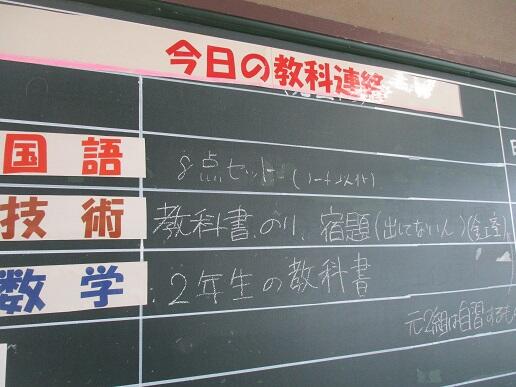 今日の教科連絡
国語 8点セット(ノート
技術 教科書、のり、宿題(出してない人)(金工室)
数学 2年生の教科書
元2組は自習するも